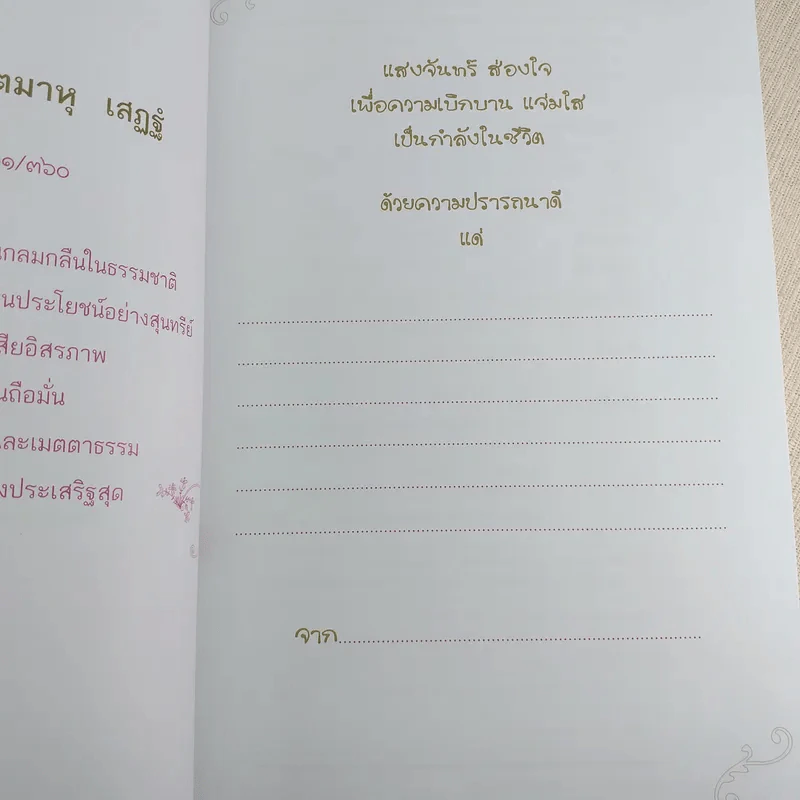 เสฏฐํ
๑/๓๖๐
กลมกลืนในธรรมชาติ
ประโยชน์อย่างสุนทรีย์
อิสรภาพ
ถือมั่น
และเมตตาธรรม
ประเสริฐสุด
แสงจันทร์ ส่องใจ
เพื่อความเบิกบาน แจ่มใส
เป็นกำลังในชีวิต
ด้วยความปรารถนาดี
แด่
จาก